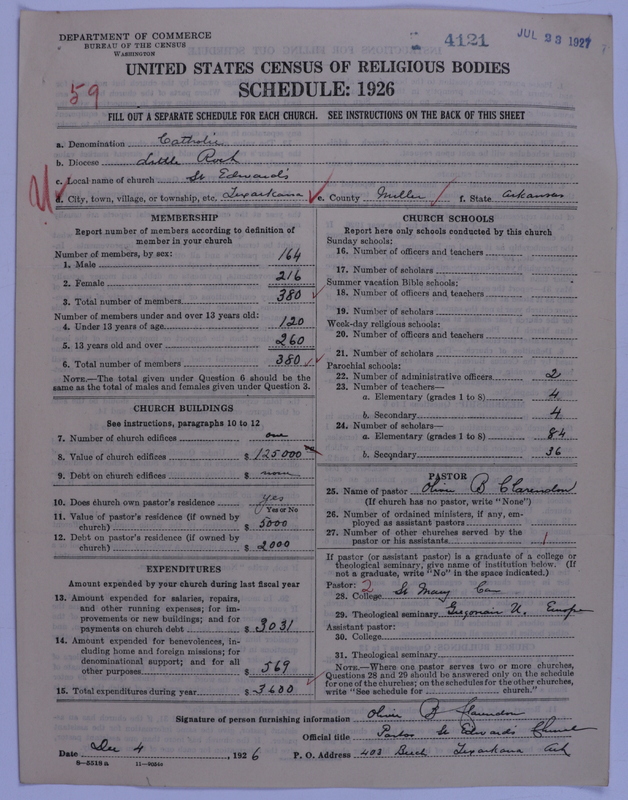 DEPARTMENT OF COMMERCE
BUREAU OF THE CENSUS
WASHINGTON
4121
JUL 23 1927
UNITED STATES CENSUS OF RELIGIOUS BODIES
59
SCHEDULE: 1926
FILL OUT A SEPARATE SCHEDULE FOR EACH CHURCH. SEE INSTRUCTIONS ON THE BACK OF THIS SHEET
a. Denomination Catholic
b. Diocese Little Rock
c. Local name of church St Edward's
d. City, town, village, or township, etc. Texarkana e. County Miller f. State Arkansas
MEMBERSHIP
Report number of members according to definition of member in your church
Number of members, by sex:
1. Male 164
2. Female 216
3. Total number of members 380
Number of members under and over 13 years old:
4. Under 13 years of age 120
5. 13 years old and over 260
6. Total number of members 380
NOTE.—The total given under Question 6 should be the
same as the total of males and females given under Question 3.
CHURCH BUILDINGS
See instructions, paragraphs 10 to 12
7. Number of church edifices one
8. Value of church edifices $ 125000
9. Debt on church edifices $ none
10. Does church own pastor's residence yes
Yes or No
11. Value of pastor's residence (if owned by
church) $ 5000
12. Debt on pastor's residence (if owned by
church) $ 2000
EXPENDITURES
Amount expended by your church during last fiscal year
13. Amount expended for salaries, repairs,
and other running expenses; for im-
provements or new buildings; and for
payments on church debt $ 3031
14. Amount expended for benevolences, in-
cluding home and foreign missions; for
denominational support; and for all
other purposes $ 569
15. Total expenditures during year $ 3600
CHURCH SCHOOLS
Report here only schools conducted by this church
Sunday schools:
16. Number of officers and teachers
17. Number of scholars
Summer vacation Bible schools:
18. Number of officers and teachers
19. Number of scholars
Week-day religious schools:
20. Number of officers and teachers
21. Number of scholars
Parochial schools:
22. Number of administrative officers 2
23. Number of teachers—
a. Elementary (grades 1 to 8) 4
b. Secondary 4
24. Number of scholars—
a. Elementary (grades 1 to 8) 84
b. Secondary 36
PASTOR
25. Name of pastor Oliver B Clarendon
(If church has no pastor, write "None")
26. Number of ordained ministers, if any, em-
ployed as assistant pastors
27. Number of other churches served by the
pastor or his assistants 1
If pastor (or assistant pastor) is a graduate of a college or
theological seminary, give name of institution below. (If
not a graduate, write "No" in the space indicated.)
Pastor: 2
28. College St Mary Can
29. Theological seminary Gregorian U. Europe
Assistant pastor:
30. College
31. Theological seminary
NOTE.—Where one pastor serves two or more churches,
Questions 28 and 29 should be answered only on the schedule
for one of the churches; on the schedules for the other churches,
write "See schedule for church."
Signature of person furnishing information Oliver B Clarendon
Official title Pastor St Edward's Church
Date Dec 4, 1926 P. O. Address 403 Beech Texarkana Ark
8—5518a